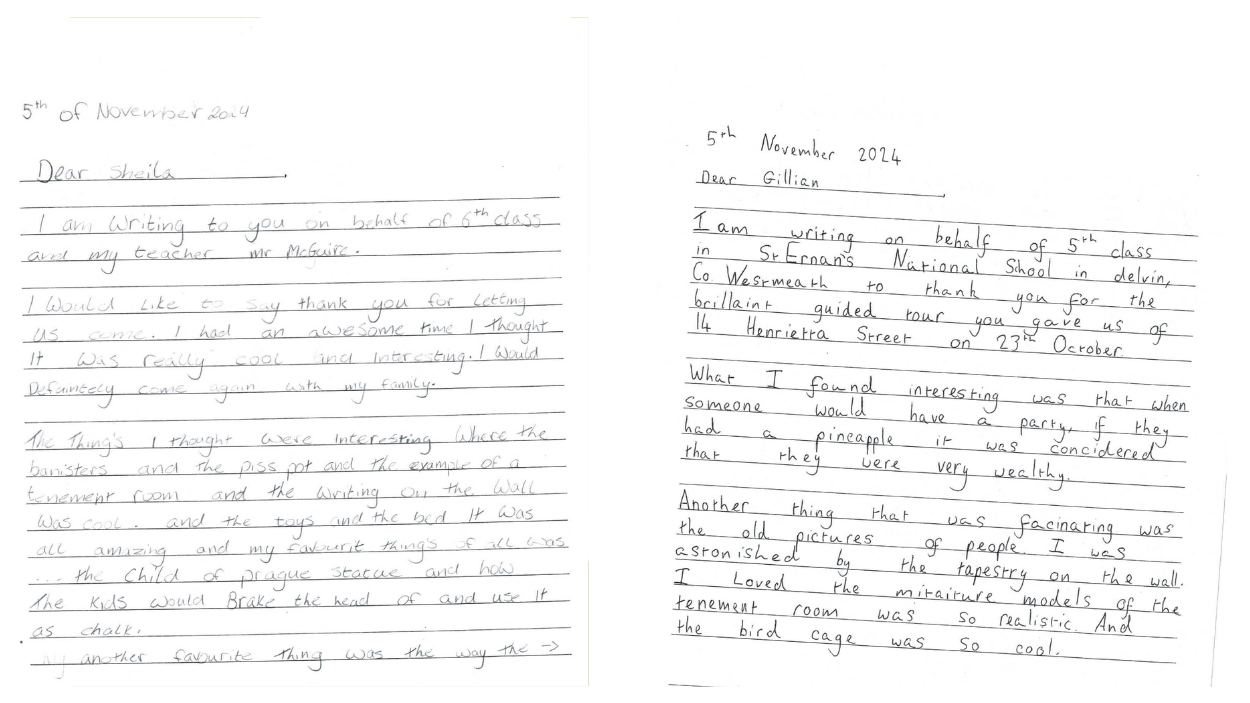 5th of November 2024
Dear Sheila
I am writing to you on behalf of 6th class
and my teacher mr McGuire.
I Would Like to say thank you for Letting
us come. I had an awesome time I thought
It was really cool and Interesting. I Would
Defaintely come again with my family.
The Thing's I thought were Interesting Where the
banisters and the piss pot and the example of a
tenement room and the writing on the Wall
Was cool. and the toys and the bed It was
all amazing and my favourit thing's of all was
... the Child of prague Statue and how
The Kids would Brake the head of and use It
as chalk.
another favourite thing was the way the →
5th November 2024
Dear Gillian
I am writing on behalf of 5th class
in St Ernan's National Shool in delvin,
Co. Westmeath to thank you for the
brillaint guided tour you gave us of
14 Henrietta Street on 23th October.
What I found interesting was that when
someone would have a party, if they
had a pineapple it was concidered
that they were very wealthy.
Another thing that was facinating was
the old pictures of people. I was
astonished by the tapestry on the wall.
I Loved the mitaiture models of the
tenement room was so realistic. And
the bird cage was so cool.